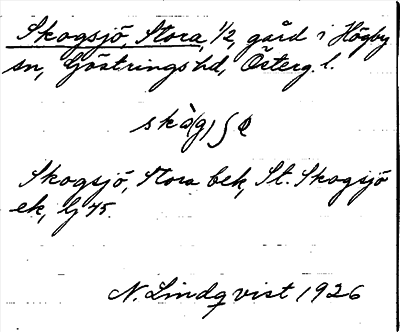 Skogsjö, Stora, 1/2, gård i Högby
sn, Göstrings hd, Österg. l.
Skogsjö, Stora bek, St. Skogsjö
ek, lj 45.
N. Lindqvist 1926